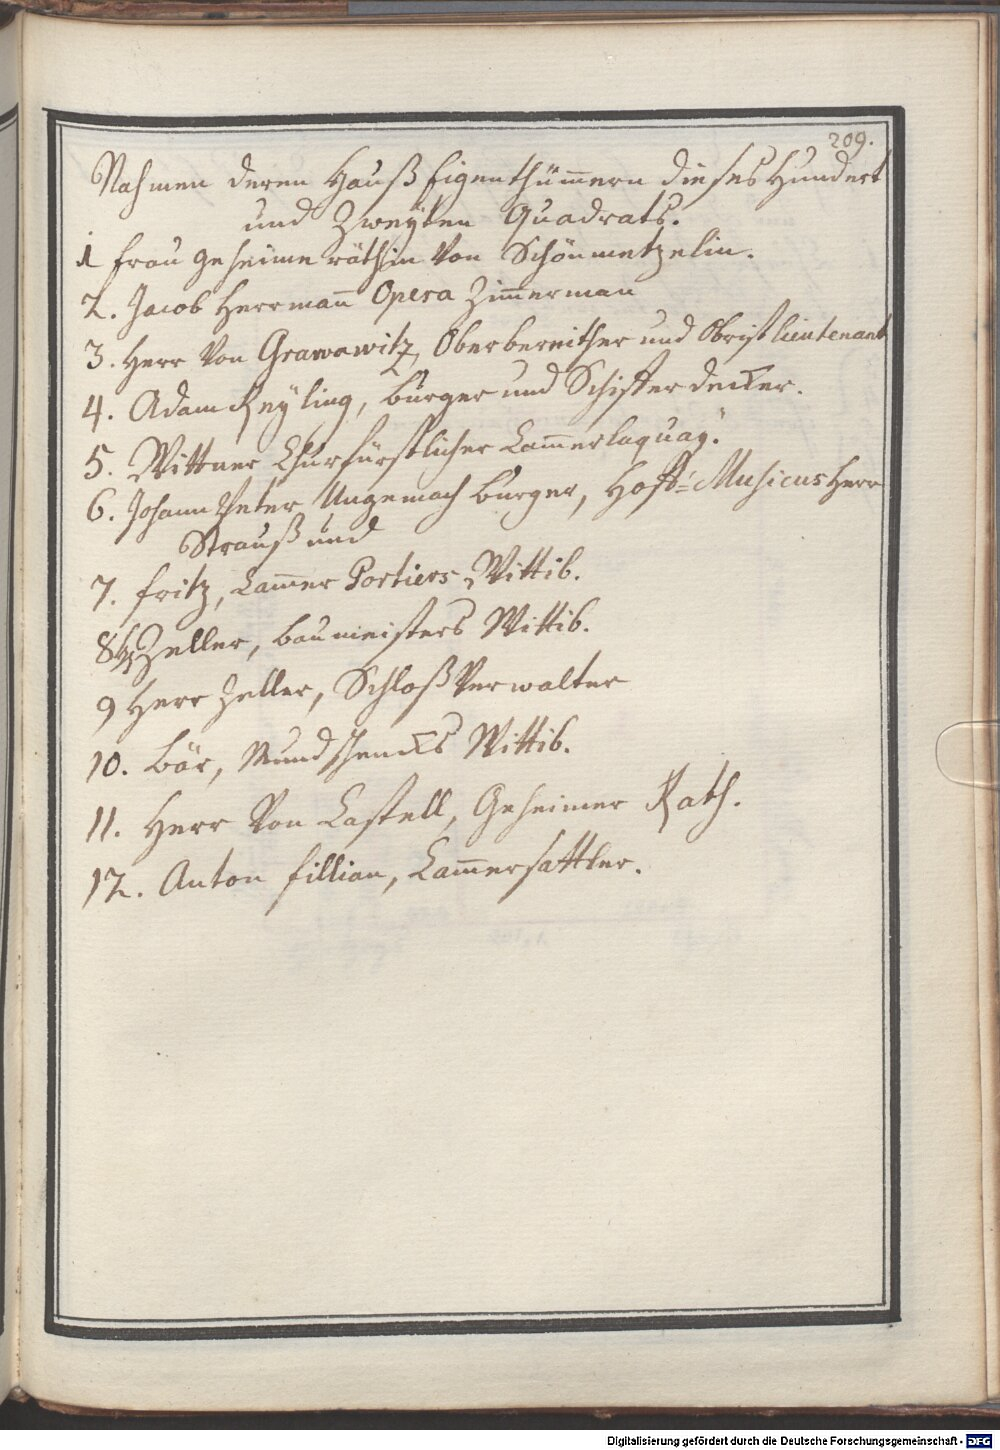 209.
Nahmen deren Hauß Eigenthümmern dieses Hundert
und Zweyten Quadrats.
1 Frau geheime räthin von Schönmetzelin.
2. Jacob Herrmann Opera Zimmerman
3. Herr von Grawawitz, Oberbereither und Obristlieutenant
4. Adam Reyling, burger und Schifferdecker.
5. Wittner Churfürstlicher Cammerlaquay.
6. Johann Peter Ungemach burger, Hoff-Musicus Herr
Strauß und
7. Fritz, Cammer Portiers Wittib.
8 Zeller, baumeisters Wittib.
9 Herr Zeller, Schloß Verwalter
10. Bär, Mundschencks Wittib.
11. Herr von Castell, Geheimer Rath.
12. Anton Fillian, Cammersattler.
Digitalisierung gefördert durch die Deutsche Forschungsgemeinschaft - DFG